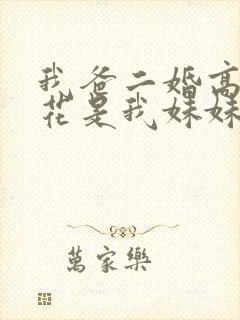 我爸二婚高
花是我妹妹
萬家樂